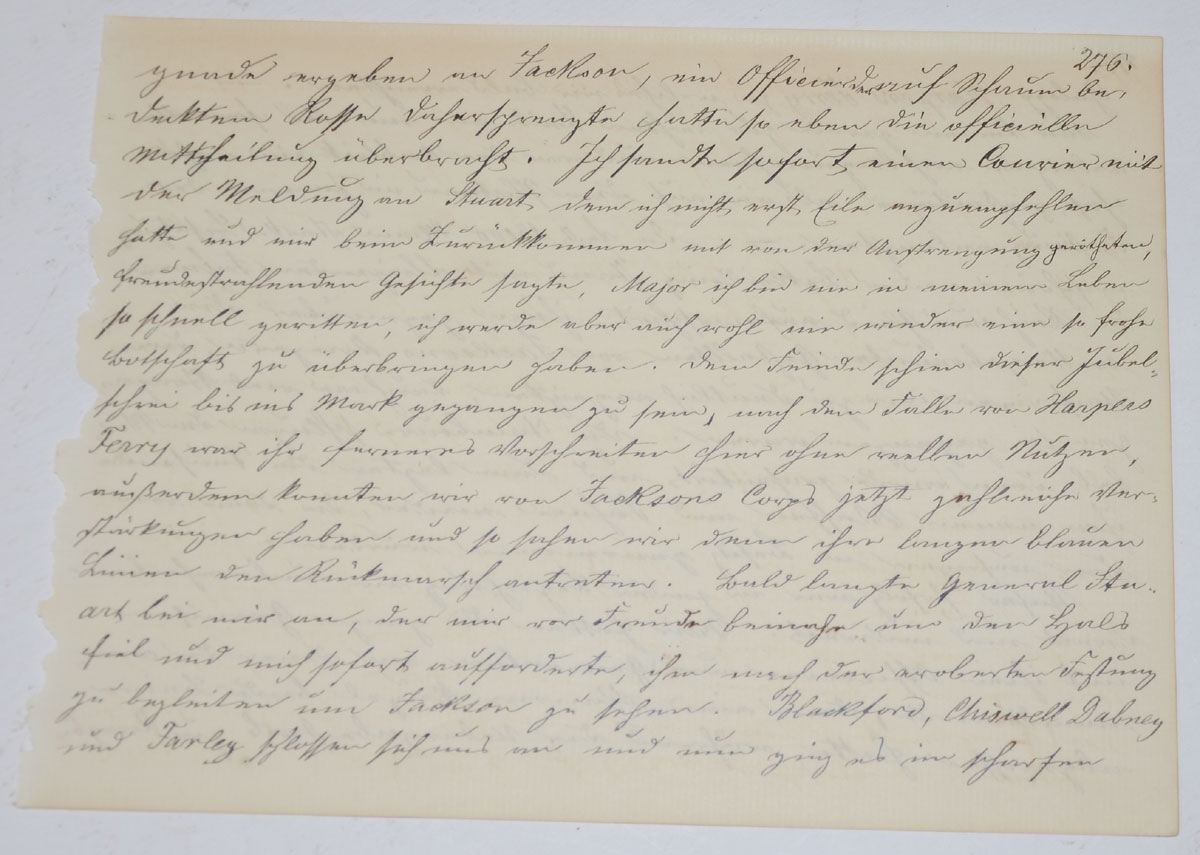 276.
gnade ergeben an Jackson, ein Officier der auf Schaum be-
decktem Rosse dahersprengte hatte so eben die officielle
Mittheilung überbracht. Ich sandte sofort einen Courier mit
der Meldung an Stuart, dem ich nicht erst Eile anzuempfehlen
hatte und mir beim Zurückkommen mit von der Anstrengung gerötheten,
freudestrahlenden Gesichte sagte, Major ich bin nie in meinem Leben
so schnell geritten, ich werde aber auch wohl nie wieder eine so frohe
Botschaft zu überbringen haben. Dem Feinde schien dieser Jubel-
schrei bis ins Mark gegangen zu sein, nach dem Falle von Harpers
Ferry war ihr ferneres Vorschreiten hier ohne reellen Nutzen,
außerdem konnten wir von Jacksons Corps jetzt zahlreiche Ver-
stärkungen haben und so sahen wir denn ihre langen blauen
Linien den Rückmarsch antreten. Bald langte General Stu-
art bei mir an, der mir vor Freude beinahe um den Hals
fiel und mich sofort aufforderte, ihn nach der eroberten Festung
zu begleiten um Jackson zu sehen. Blackford, Chiswell Dabney
und Farley schlossen sich uns an und nun ging es im scharfen